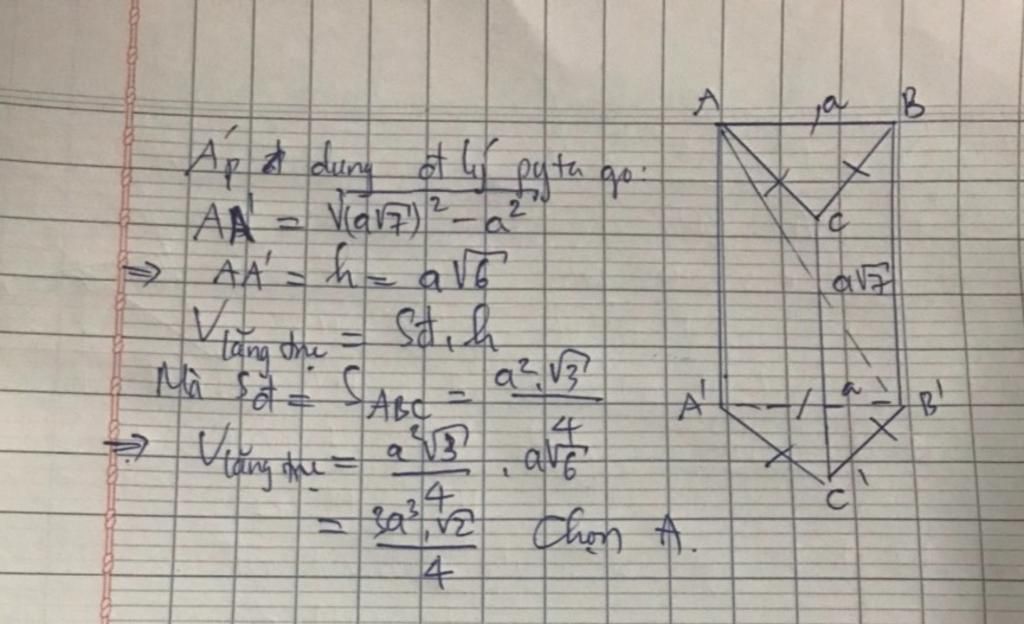 Áp dụng đ lý pytago:
AA' = √(a√7)² - a²
⇒ AA' = h = a√6
V lăng trụ = Sđ . h
Mà Sđ = S ABC = a².√3 / 4
⇒ V lăng trụ = a²√3 / 4 . a√6
= 3a³.√2 / 4 Chọn A.
A a B
C
a√7
A' a B'
C'